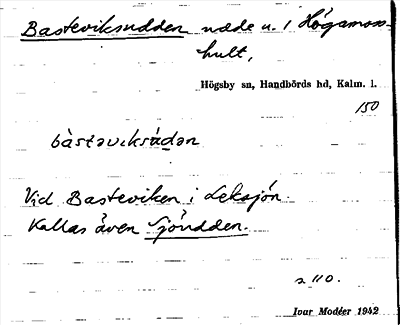 Basteviksudden udde u. i Högamoss-
hult,
Högsby sn, Handbörds hd, Kalm. l.
150
bàstəvɩksùdən
Vid Basteviken i Leksjön.
Kallas även Sjöudden.
s. 110.
Ivar Modéer 1942